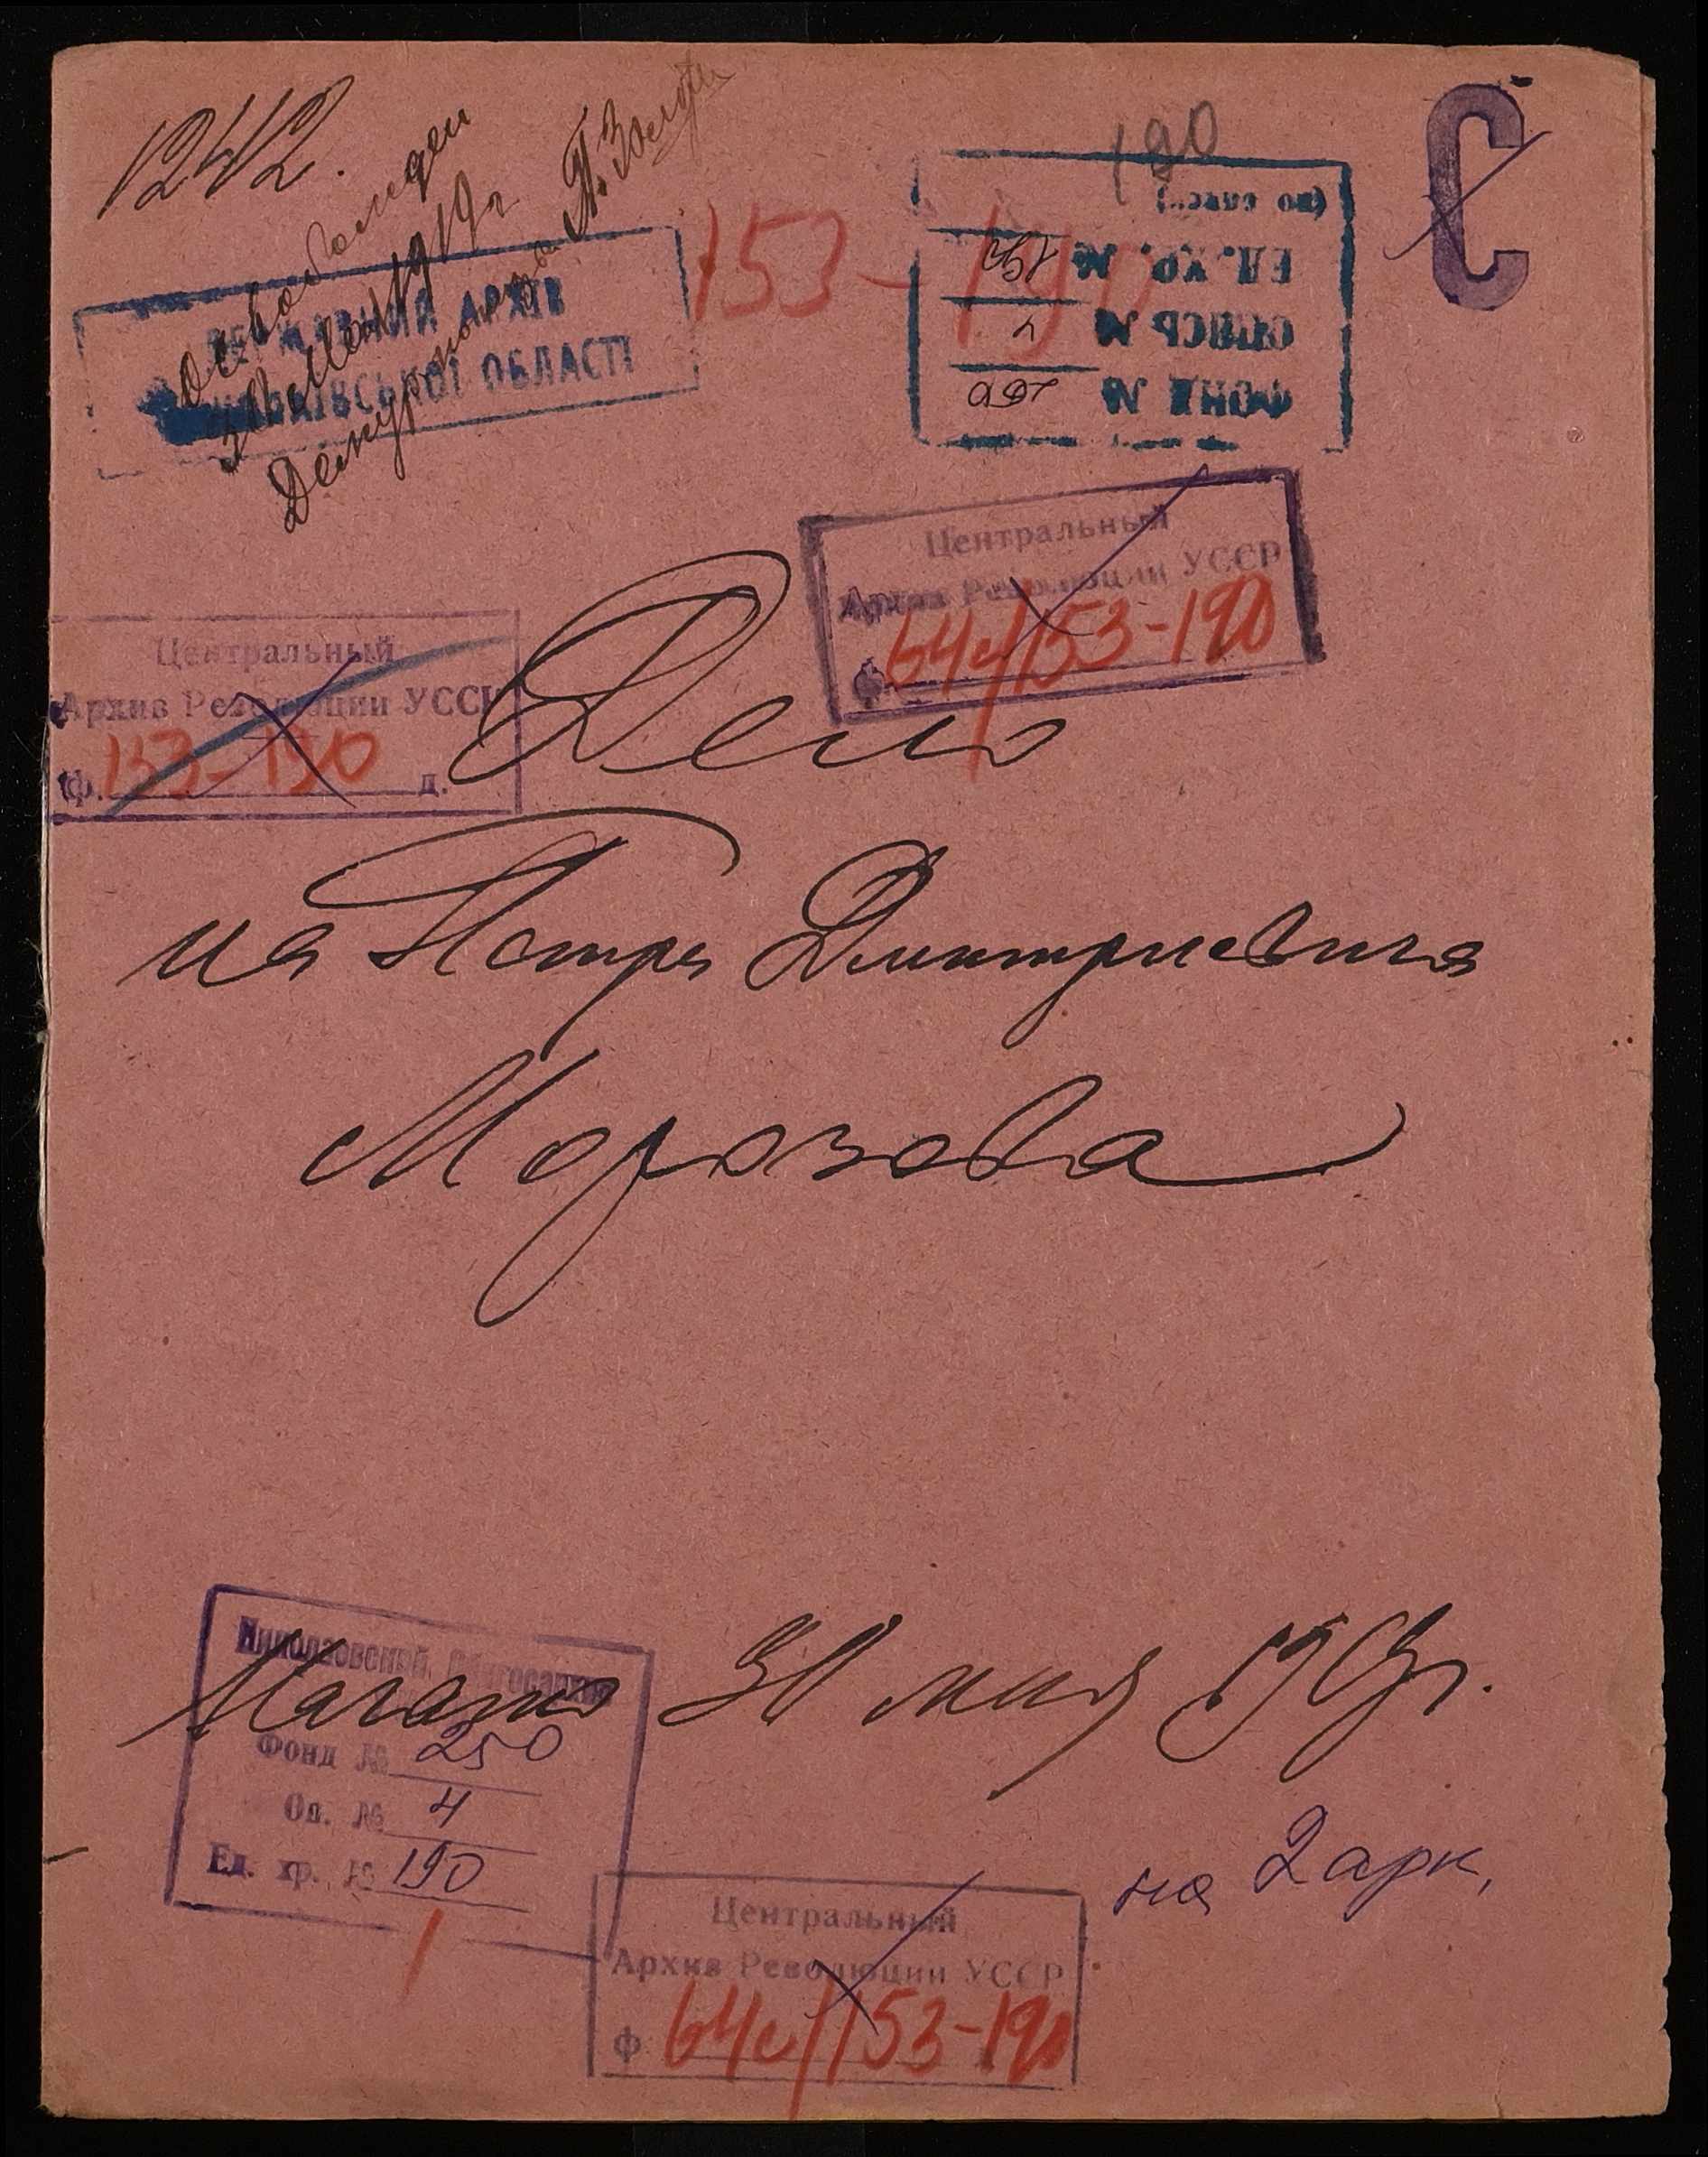 1242.
освобожден
1919 г
Дежурный
ДЕРЖАВНИЙ АРХІВ
ОБЛАСТІ
153-190
190
ФОНД №
ОПИСЬ №
ЕД. ХР. №
С
Центральный
Архив Революции УССР
ф. 64с/153-190
Центральный
Архив Революции УССР
ф. 153-190 д.
Дело
на Петра Дмитриевича
Морозова
Начато 31 мая 1919 г.
Николаевский Облгосархив
Фонд № 250
Оп. № 4
Ед. хр. № 190
на 2 арк,
Центральный
Архив Революции УССР
ф 64с/153-190